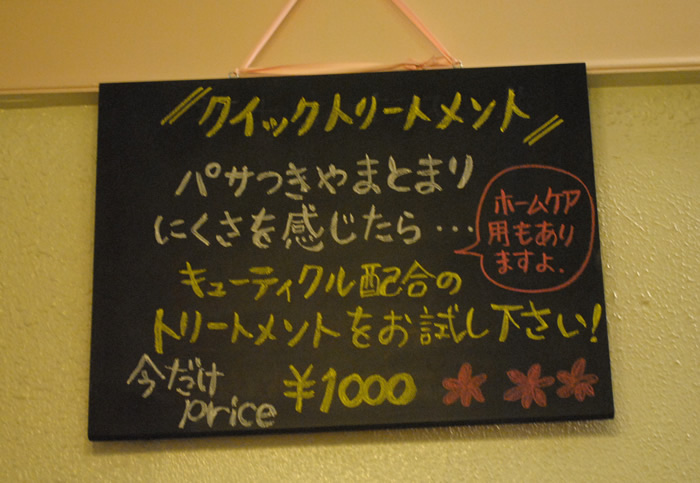 クイックトリートメント
パサつきやまとまり
にくさを感じたら…
ホームケア
用もあり
ますよ.
キューティクル配合の
トリートメントをお試し下さい!
今だけ
price
¥1000